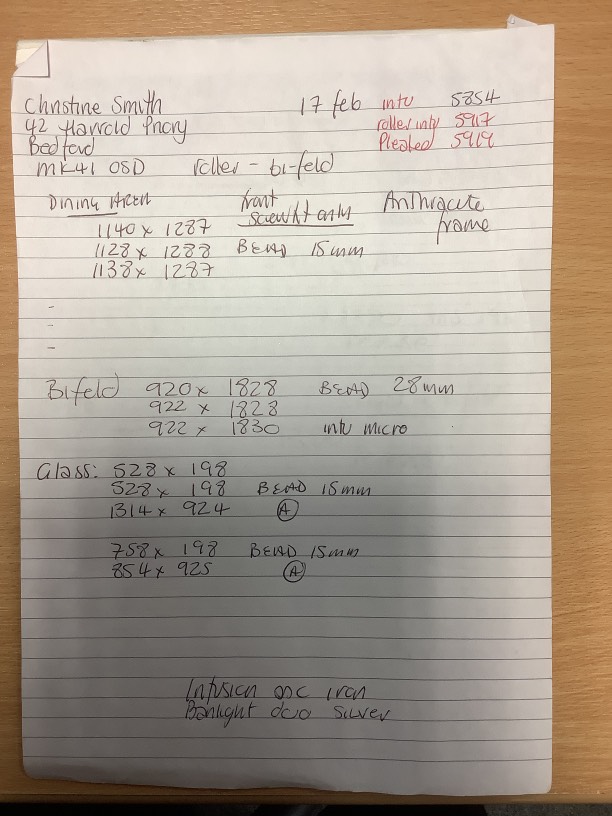 Christine Smith
42 Harrold Priory
Bedford
MK41 0SD
17 feb
intu 5854
roller intu 5917
Pleated 5919
roller - bi-feld
Dining AREA
1140 x 1287
1128 x 1288
1138 x 1287
front
screwfit only
BEAD 15mm
Anthracite
frame
Bifeld 920 x 1828 BEAD 28mm
922 x 1828
922 x 1830 intu micro
Glass: 528 x 198
528 x 198 BEAD 15mm
1314 x 924 A
758 x 198 BEAD 15mm
854 x 925 A
Infusion asc iron
Banlight duo silver